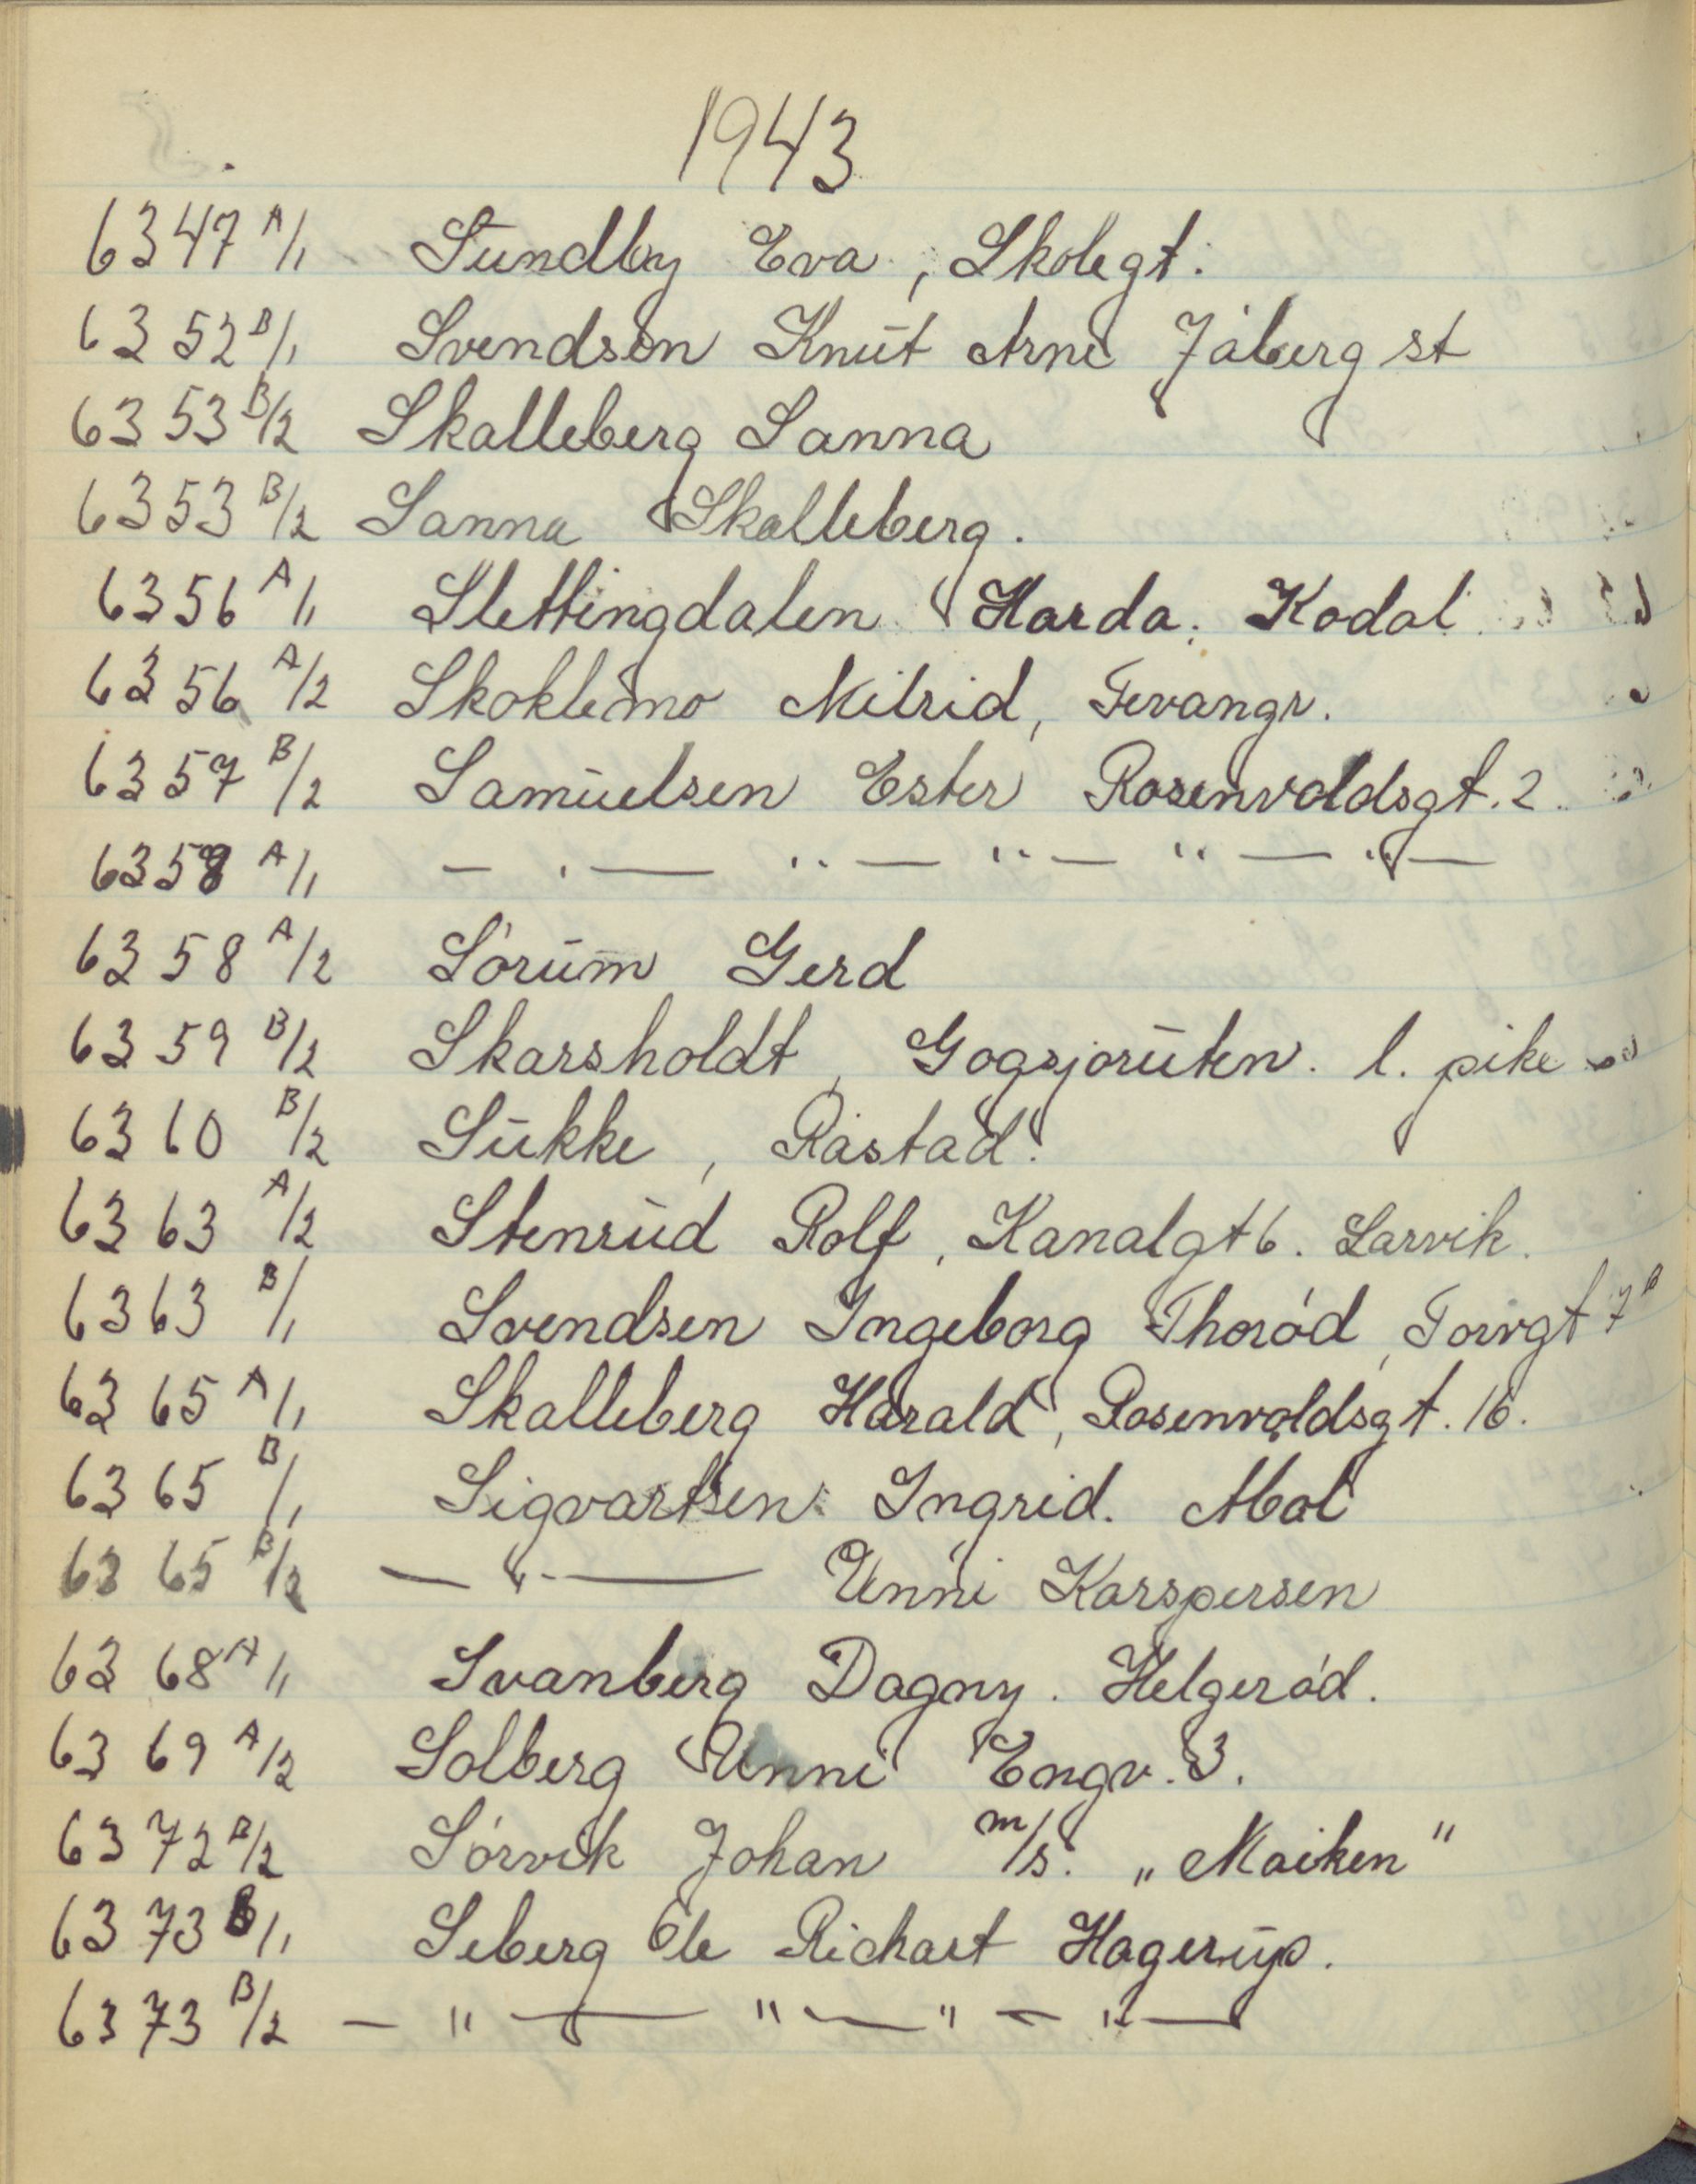 1943
6347 A/1 Sundby Eva, Skolegt.
6352 B/1 Svendsen Knut Arne Jåberg st
6353 B/2 Skalleberg Sanna
6353 B/2 Sanna Skalleberg.
6356 A/1 Slettingdalen Harda. Kodal
6356 A/2 Skoklemo Milrid, Tevangr.
6357 B/2 Samuelsen Ester Rosenvoldsgt. 2
6358 A/1 — " — " — " — " — " —
6358 A/2 Sórum Gerd
6359 B/2 Skarsholdt, Gogsjoruten. l. pike
6360 B/2 Sukke, Råstad.
6363 A/2 Stenrud Rolf, Kanalgt 6. Larvik.
6363 B/1 Svendsen Ingeborg Thoród, Torvgt 7 B
6365 A/1 Skalleberg Harald, Rosenvoldsgt. 16.
6365 B/1 Sigvartsen Ingrid. Mol
6365 B/2 — " — Unni Karspersen
6368 A/1 Svanberg Dagny. Helgeród.
6369 A/2 Solberg Unni Engv. 3.
6372 B/2 Sórvik Johan m/s. „Maiken"
6373 B/1 Seberg Ole Richart Hagerup.
6373 B/2 — " — " — " — " —